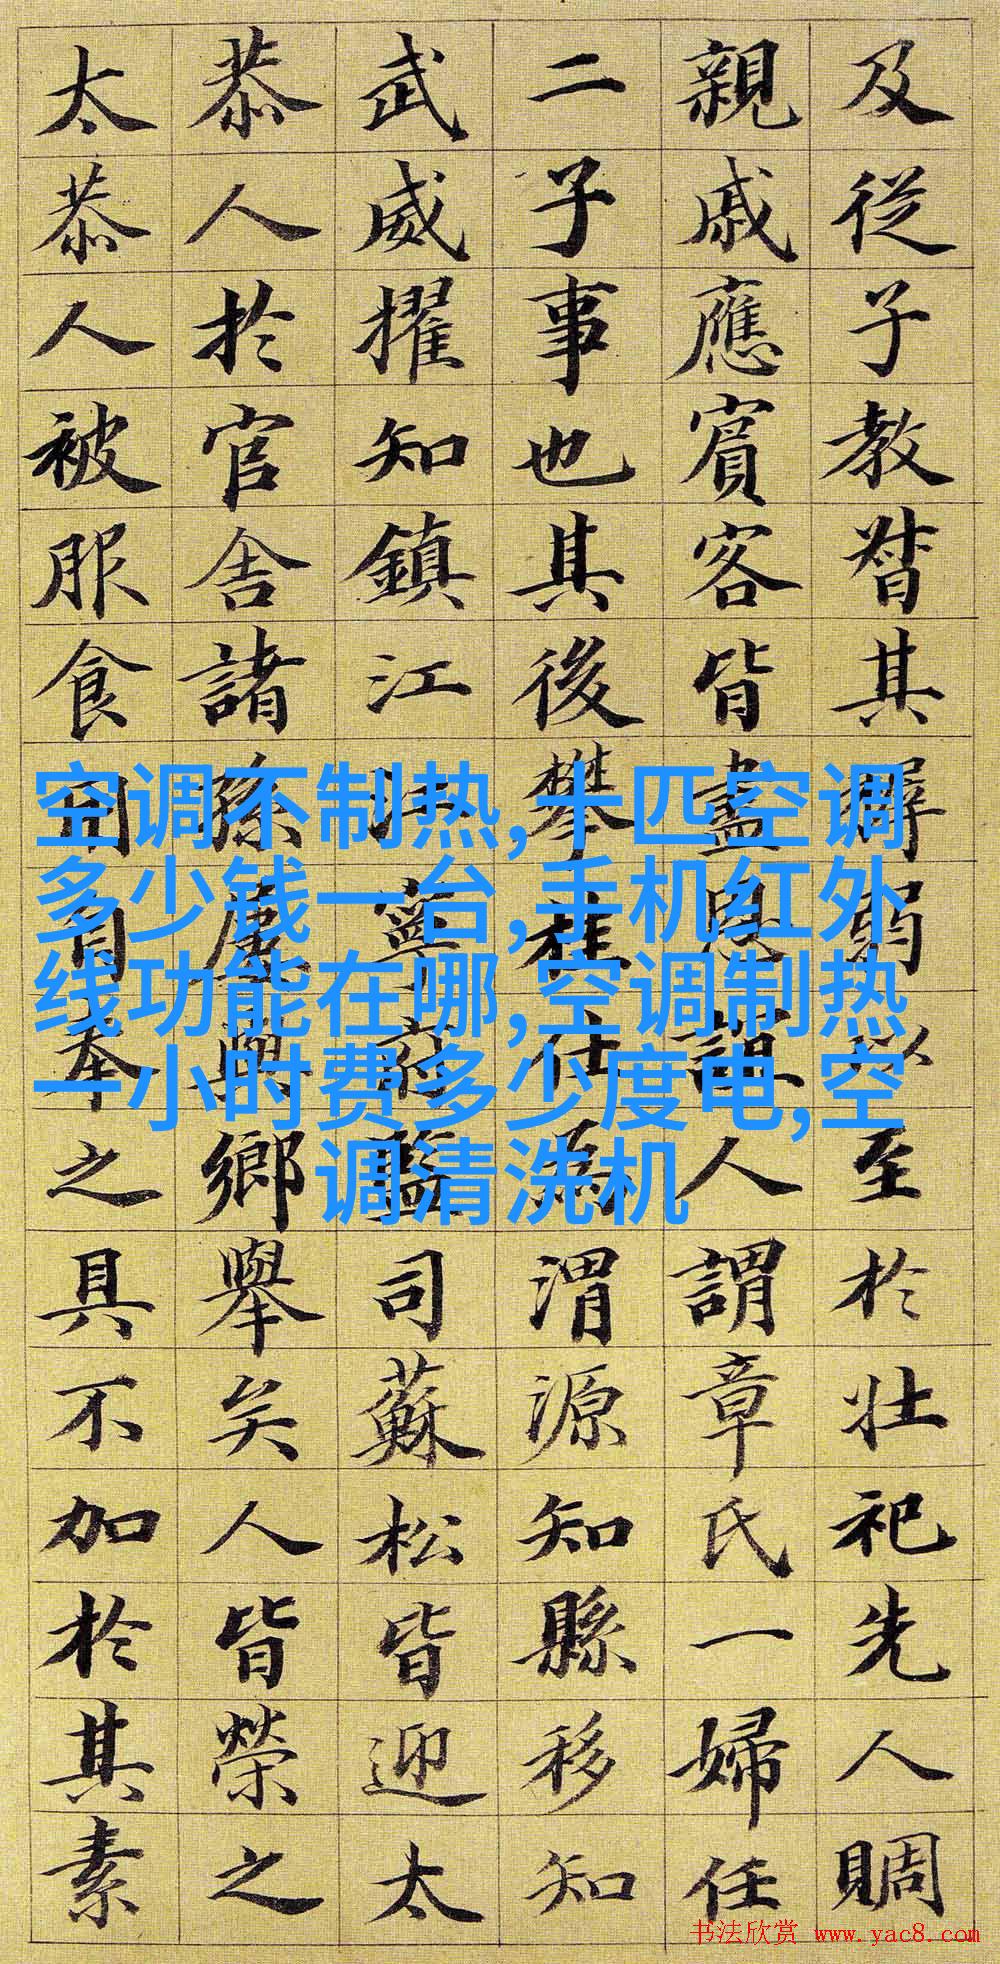 及從子教督其弱以至於壯祀先人賙
親戚應賓客皆盡恩誼人謂章氏一婦任
二子事也其後攀桂仕爲渭源知縣移知
武威擢知鎮江江寧蒞監司蘇松皆迎太
恭人於官舍諸孫與鄉舉矣人皆榮之
太恭人被服食用自奉之具不加於其素
空调不制热,十匹空调
多少钱一台,手机红外
线功能在哪,空调制热
一小时费多少度电,空
调清洗机
书法欣赏 www.yac8.com